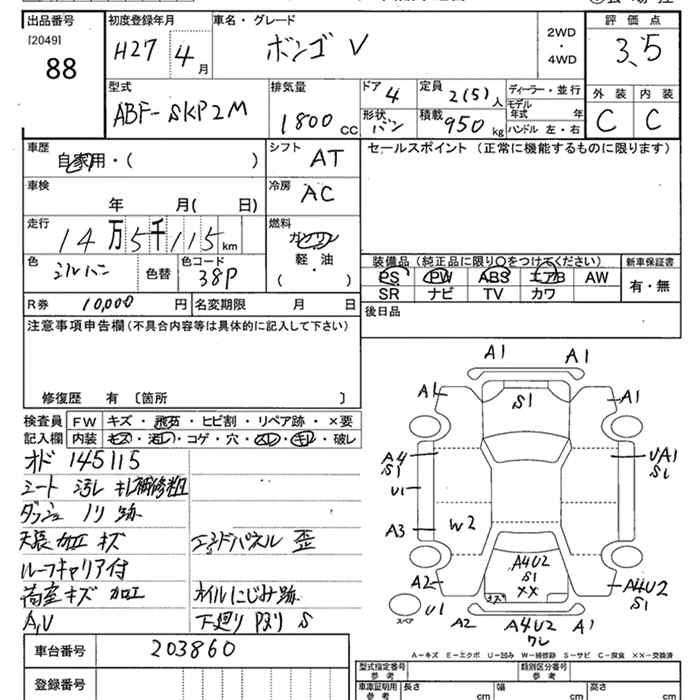 出品番号
[2049]
88
初度登録年月
H27 4月
車名・グレード
ボンゴ V
2WD
・
4WD
評価点
3.5
型式
ABF-SKP2M
排気量
1800 cc
ドア 4
定員 2(5)人
ディーラー・並行
モデル年式 年
形状 バン
積載 950 kg
ハンドル 左・右
外装 内装
C C
車歴
自家用・( )
シフト
AT
車検
年 月( 日)
冷房
AC
走行
14万5千115km
燃料
ガソリン
軽・油
( )
色
シルバー
色替
色コード
38P
R券 10,000円
名変期限 月 日
セールスポイント (正常に機能するものに限ります)
装備品 (純正品に限り○をつけてください)
PS PW ABS エアB AW
SR ナビ TV カワ
新車保証書
有・無
後日品
注意事項申告欄(不具合内容等は具体的に記入して下さい)
修復歴 有 〔箇所 〕
検査員
記入欄
FW キズ・飛石・ヒビ割・リペア跡・×要
内装 キズ・汚れ・コゲ・穴・スレ・キレ・破レ
オド 145115
シート 汚レ キレ補修粗
ダッシュ ノリ跡
天張加工キズ
エンドパネル 歪
ルーフキャリア付
荷室キズ 加工
ホイルにじみ跡
A,V
下廻り Pヌリ S
車台番号 203860
登録番号
A1 A1
A1 S1 A1
A4
S1
UA1
S1
U1
A3
W2
A2
A4U2
S1
××
A4U2
S1
スペア
U1
A2 A4U2 A1
ワレ
A－キズ E－エクボ U－凹み W－補修跡 S－サビ C－腐食 ××－交換済
型式指定番号
参考
類別区分番号
参考
車庫証明用
参考
長さ cm
幅 cm
高さ cm